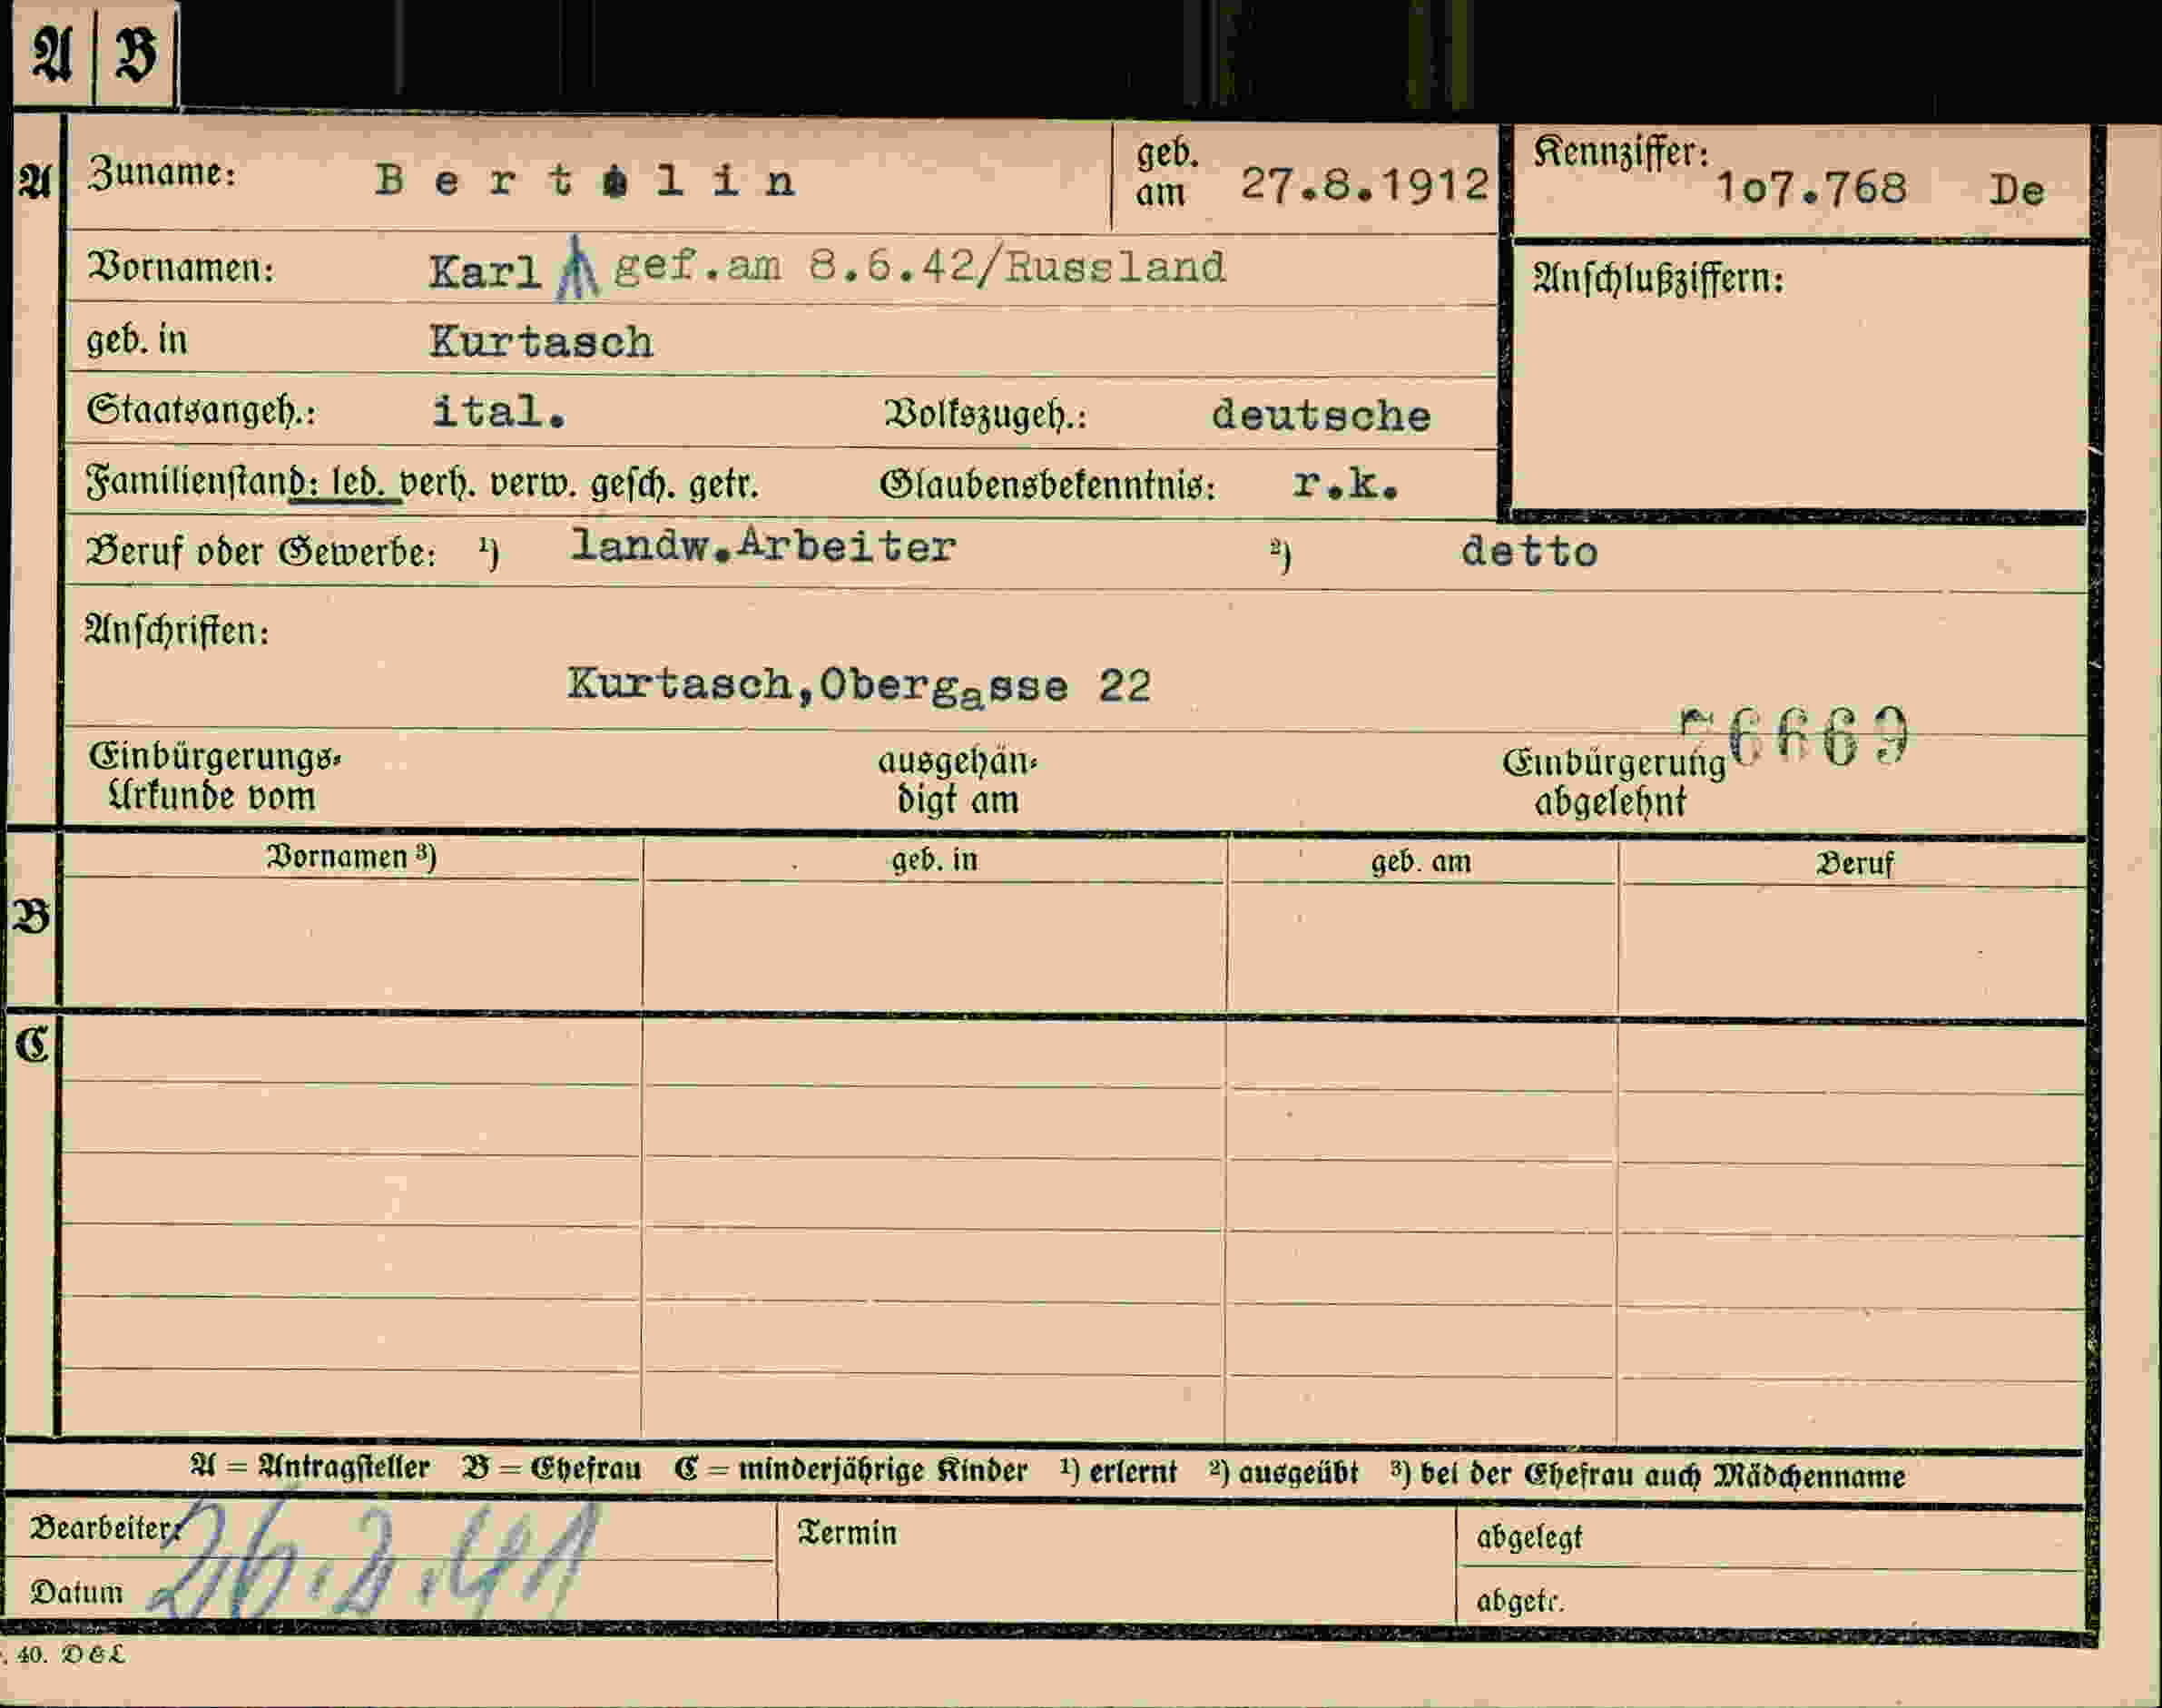 A B
A Zuname: Bertolin geb. am 27.8.1912 Kennziffer: 1o7.768 De
Vornamen: Karl gef.am 8.6.42/Russland Anschlußziffern:
geb. in Kurtasch
Staatsangeh.: ital. Volkszugeh.: deutsche
Familienstand: led. verh. verw. gesch. getr. Glaubensbekenntnis: r.k.
Beruf oder Gewerbe: ¹) landw.Arbeiter ²) detto
Anschriften:
Kurtasch,Obergasse 22
6669
Einbürgerungs= ausgehän= Einbürgerung
Urkunde vom digt am abgelehnt
Vornamen ³) geb. in geb. am Beruf
B
C
A = Antragsteller B = Ehefrau C = minderjährige Kinder ¹) erlernt ²) ausgeübt ³) bei der Ehefrau auch Mädchenname
Bearbeiter: Termin abgelegt
26.2.41
Datum abgetr.
40. D&L